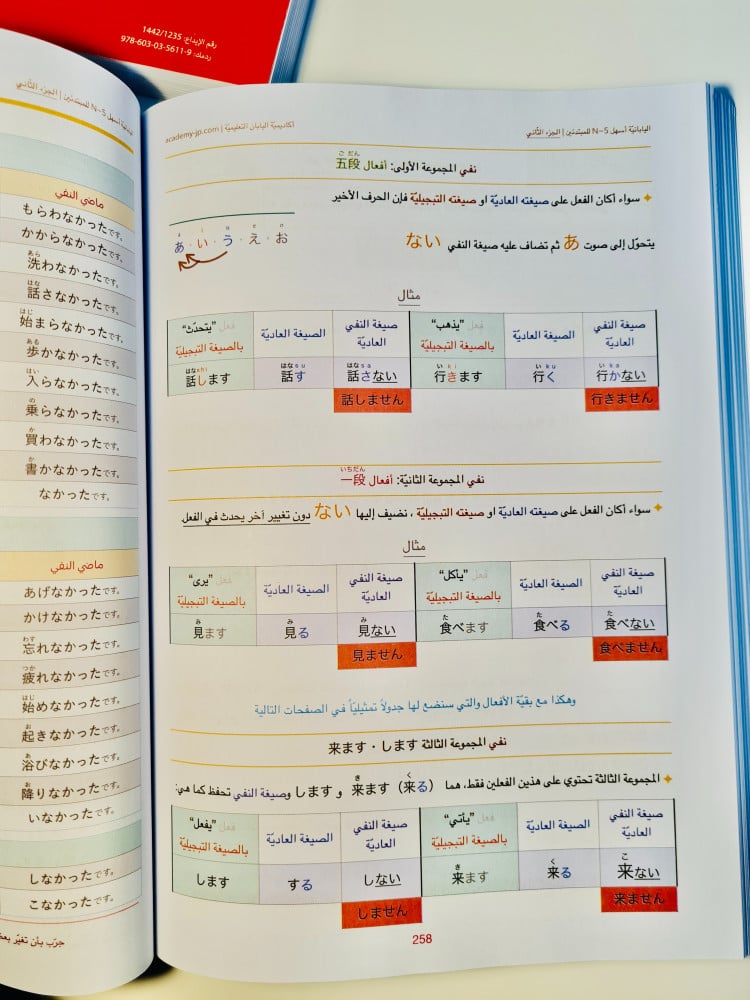 رقم الإيداع: 1442/1235
ردمك: 978-603-03-5611-9
اليابانيّة أسهل N-5 للمبتدئين | الجزء الثّاني
أكاديمية اليابان التعليميّة | academy-jp.com
نفي المجموعة الأولى: أفعال 五段
ご だん
✦ سواء أكان الفعل على صيغته العاديّة او صيغته التبجيليّة فإن الحرف الأخير
يتحوّل إلى صوت あ ثم تضاف عليه صيغة النفي ない
a i u e o
あ・い・う・え・お
مثال
صيغة النفي العاديّة
الصيغة العاديّة
فعل "يذهب" بالصيغة التبجيليّة
صيغة النفي العاديّة
الصيغة العاديّة
فعل "يتحدّث" بالصيغة التبجيليّة
い ka
行かない
い ku
行く
い ki
行きます
はな sa
話さない
はな su
話す
はな shi
話します
行きません
話しません
نفي المجموعة الثانية: أفعال 一段
いちだん
✦ سواء أكان الفعل على صيغته العاديّة او صيغته التبجيليّة ، نضيف إليها ない دون تغيير آخر يحدث في الفعل
مثال
صيغة النفي العاديّة
الصيغة العاديّة
فعل "يأكل" بالصيغة التبجيليّة
صيغة النفي العاديّة
الصيغة العاديّة
فعل "يرى" بالصيغة التبجيليّة
た
食べない
た
食べる
た
食べます
み
見ない
み
見る
み
見ます
食べません
見ません
وهكذا مع بقيّة الأفعال والتي سنضع لها جدولاً تمثيليّاً في الصفحات التالية
نفي المجموعة الثالثة します・来ます
✦ المجموعة الثالثة تحتوي على هذين الفعلين فقط، هما (来る) 来ます و します وصيغة النفي تحفظ كما هي:
く
き
صيغة النفي العاديّة
الصيغة العاديّة
فعل "يأتي" بالصيغة التبجيليّة
صيغة النفي العاديّة
الصيغة العاديّة
فعل "يفعل" بالصيغة التبجيليّة
こ
来ない
く
来る
き
来ます
しない
する
します
来ません
しません
258
اليابانيّة أسهل N-5 للمبتدئين | الجزء الثّاني
ماضي النفي
もらわなかったです。
かからなかったです。
あら
洗わなかったです。
はな
話さなかったです。
はじ
始まらなかったです。
ある
歩かなかったです。
はい
入らなかったです。
の
乗らなかったです。
か
買わなかったです。
か
書かなかったです。
なかったです。
ماضي النفي
あげなかったです。
かけなかったです。
わす
忘れなかったです。
つか
疲れなかったです。
はじ
始めなかったです。
お
起きなかったです。
あ
浴びなかったです。
お
降りなかったです。
いなかったです。
しなかったです。
こなかったです。
جرّب بأن تغيّر